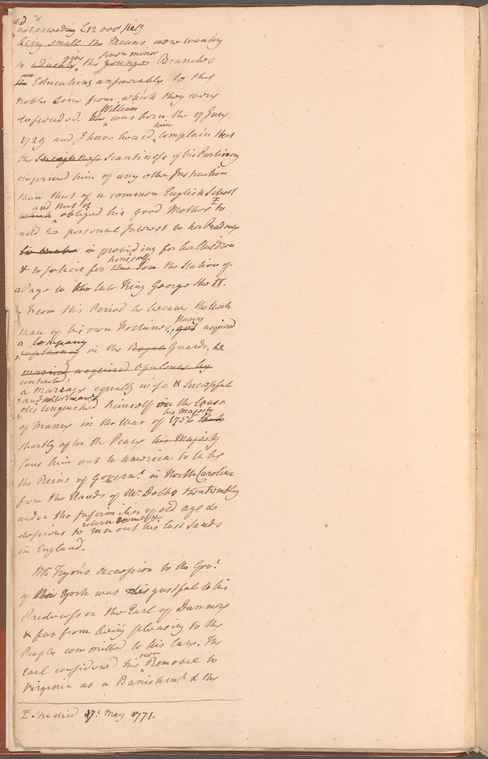 not exceeding £12.000 Stg
small the Means were wanting
to give the seven minor Branches
an Education answerable to the
noble Line from which they were
descended. William was born the 17 July
1729 and I have heard him complain that
the Scantiness of his Patrimony
deprived him of any other Instruction
than that of a common English School
and that of obliged his good Mother Ɨ to
add her personal Interest to her Prudence
in providing for her Children
& to solicit for himself the Station of
a Page to the late King George the II.
From this Period he became the Work
man of his own Fortune; Having acquired
a Company in the Guards, he
married acquired Opulence by
contracted
a Marriage equally wise & successful
and afterwards
distinguished himself on the Coast
of France in the War of 1756
shortly after the Peace his Majesty
sent him out to America to take
the Reins of Governt. in North Carolina
from the Hands of Mr. Dobbs then trembling
under the Infirmities of old age &
desirous to return home & run out his last Sands
in England.
Mr. Tryon's Accession to the Govt.
of New York was disgustful to his
Predecessor the Earl of Dunmore
& far from being pleasing to the
People committed to his Care. The
Earl considered his own Removal to
Virginia as a Banishment & the
Ɨ She died 17. May 1771.